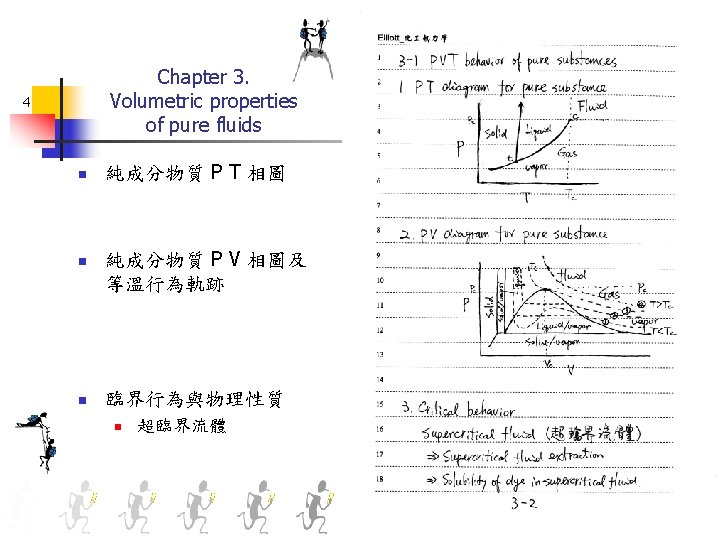 4
Chapter 3.
Volumetric properties
of pure fluids
純成分物質 P T 相圖
純成分物質 P V 相圖及
等溫行為軌跡
臨界行為與物理性質
超臨界流體
Elliott_化工熱力學
1 3-1 PVT behavior of pure substances
2 1. PT diagram for pure substance
3 Fluid
4 Pc Solid Liquid C
5 P t vapor Gas
6 T Tc
7
8 2. PV diagram for pure substance
9 Tc fluid
10 P Pc Solid Solid/liquid liquid Gas Pc
11 T>Tc
12 Liquid/vapor vapor T<Tc
13 Solid/vapor
Vc V
14
15 3. Critical behavior
16 Supercritical fluid (超臨界流體)
17 ⇒ Supercritical fluid extraction
18 ⇒ Solubility of dye in supercritical fluid
3-2